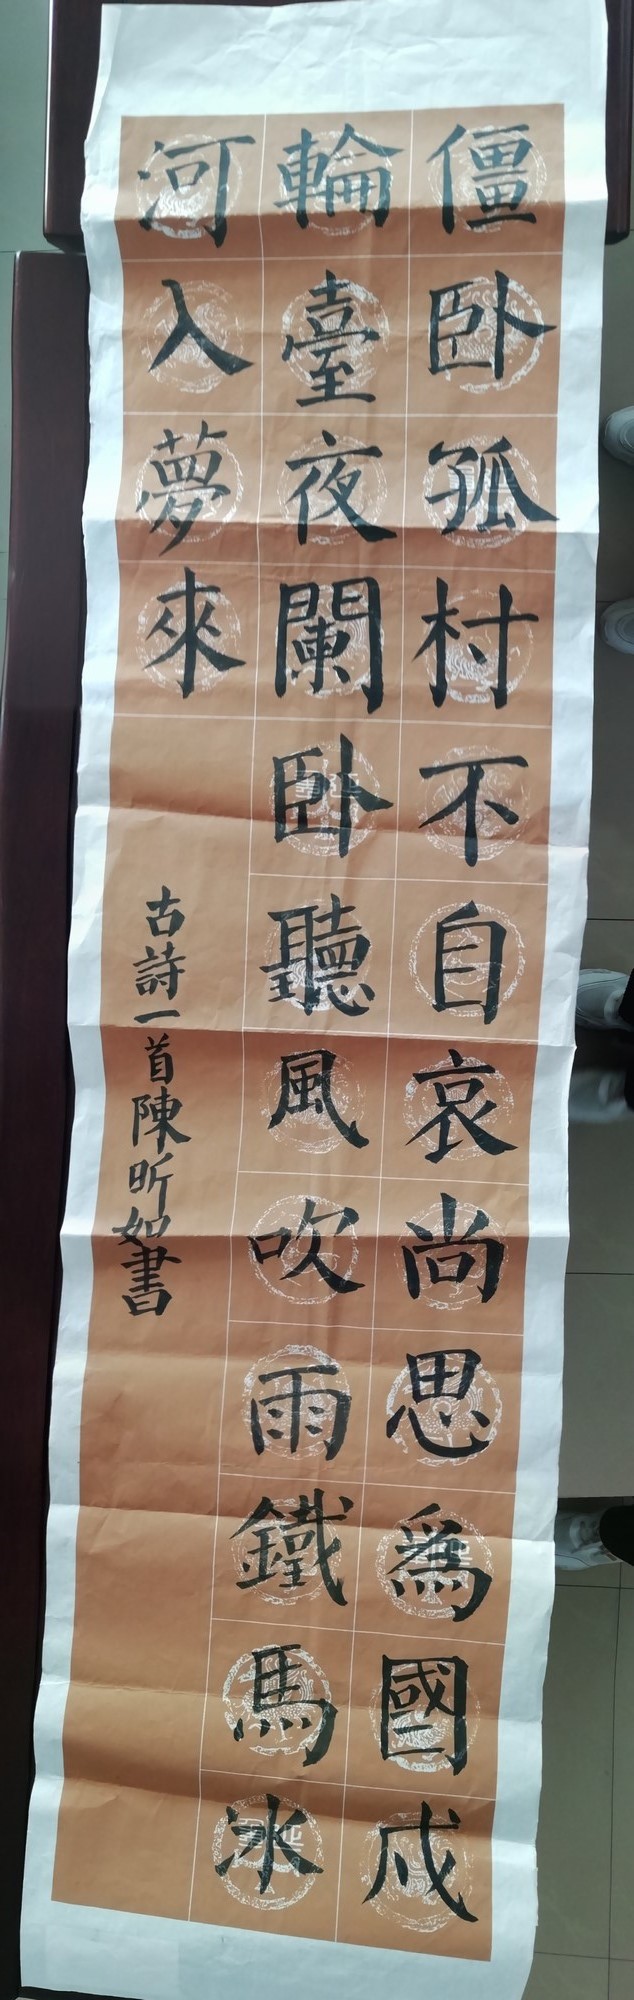 僵卧孤村不自哀尚思為國戍
輪臺夜闌卧聽風吹雨鐵馬冰
河入夢來
古詩一首陳昕如書